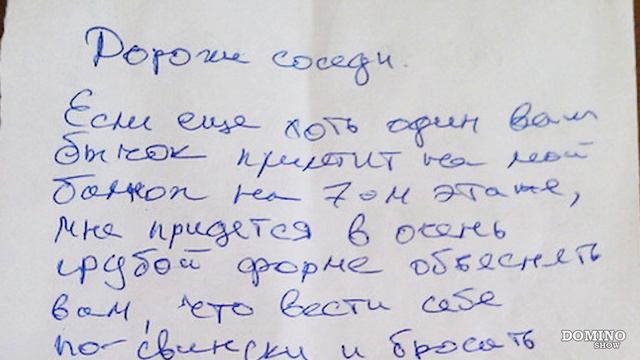 Дороги соседи.
Если еще хоть один ваш
бычок прилетит на мой
балкон на 7-ом этаже,
мне придется в очень
грубой форме объеснять
вам, что вести себе
по-свински и бросать
DOMINO
SHOW